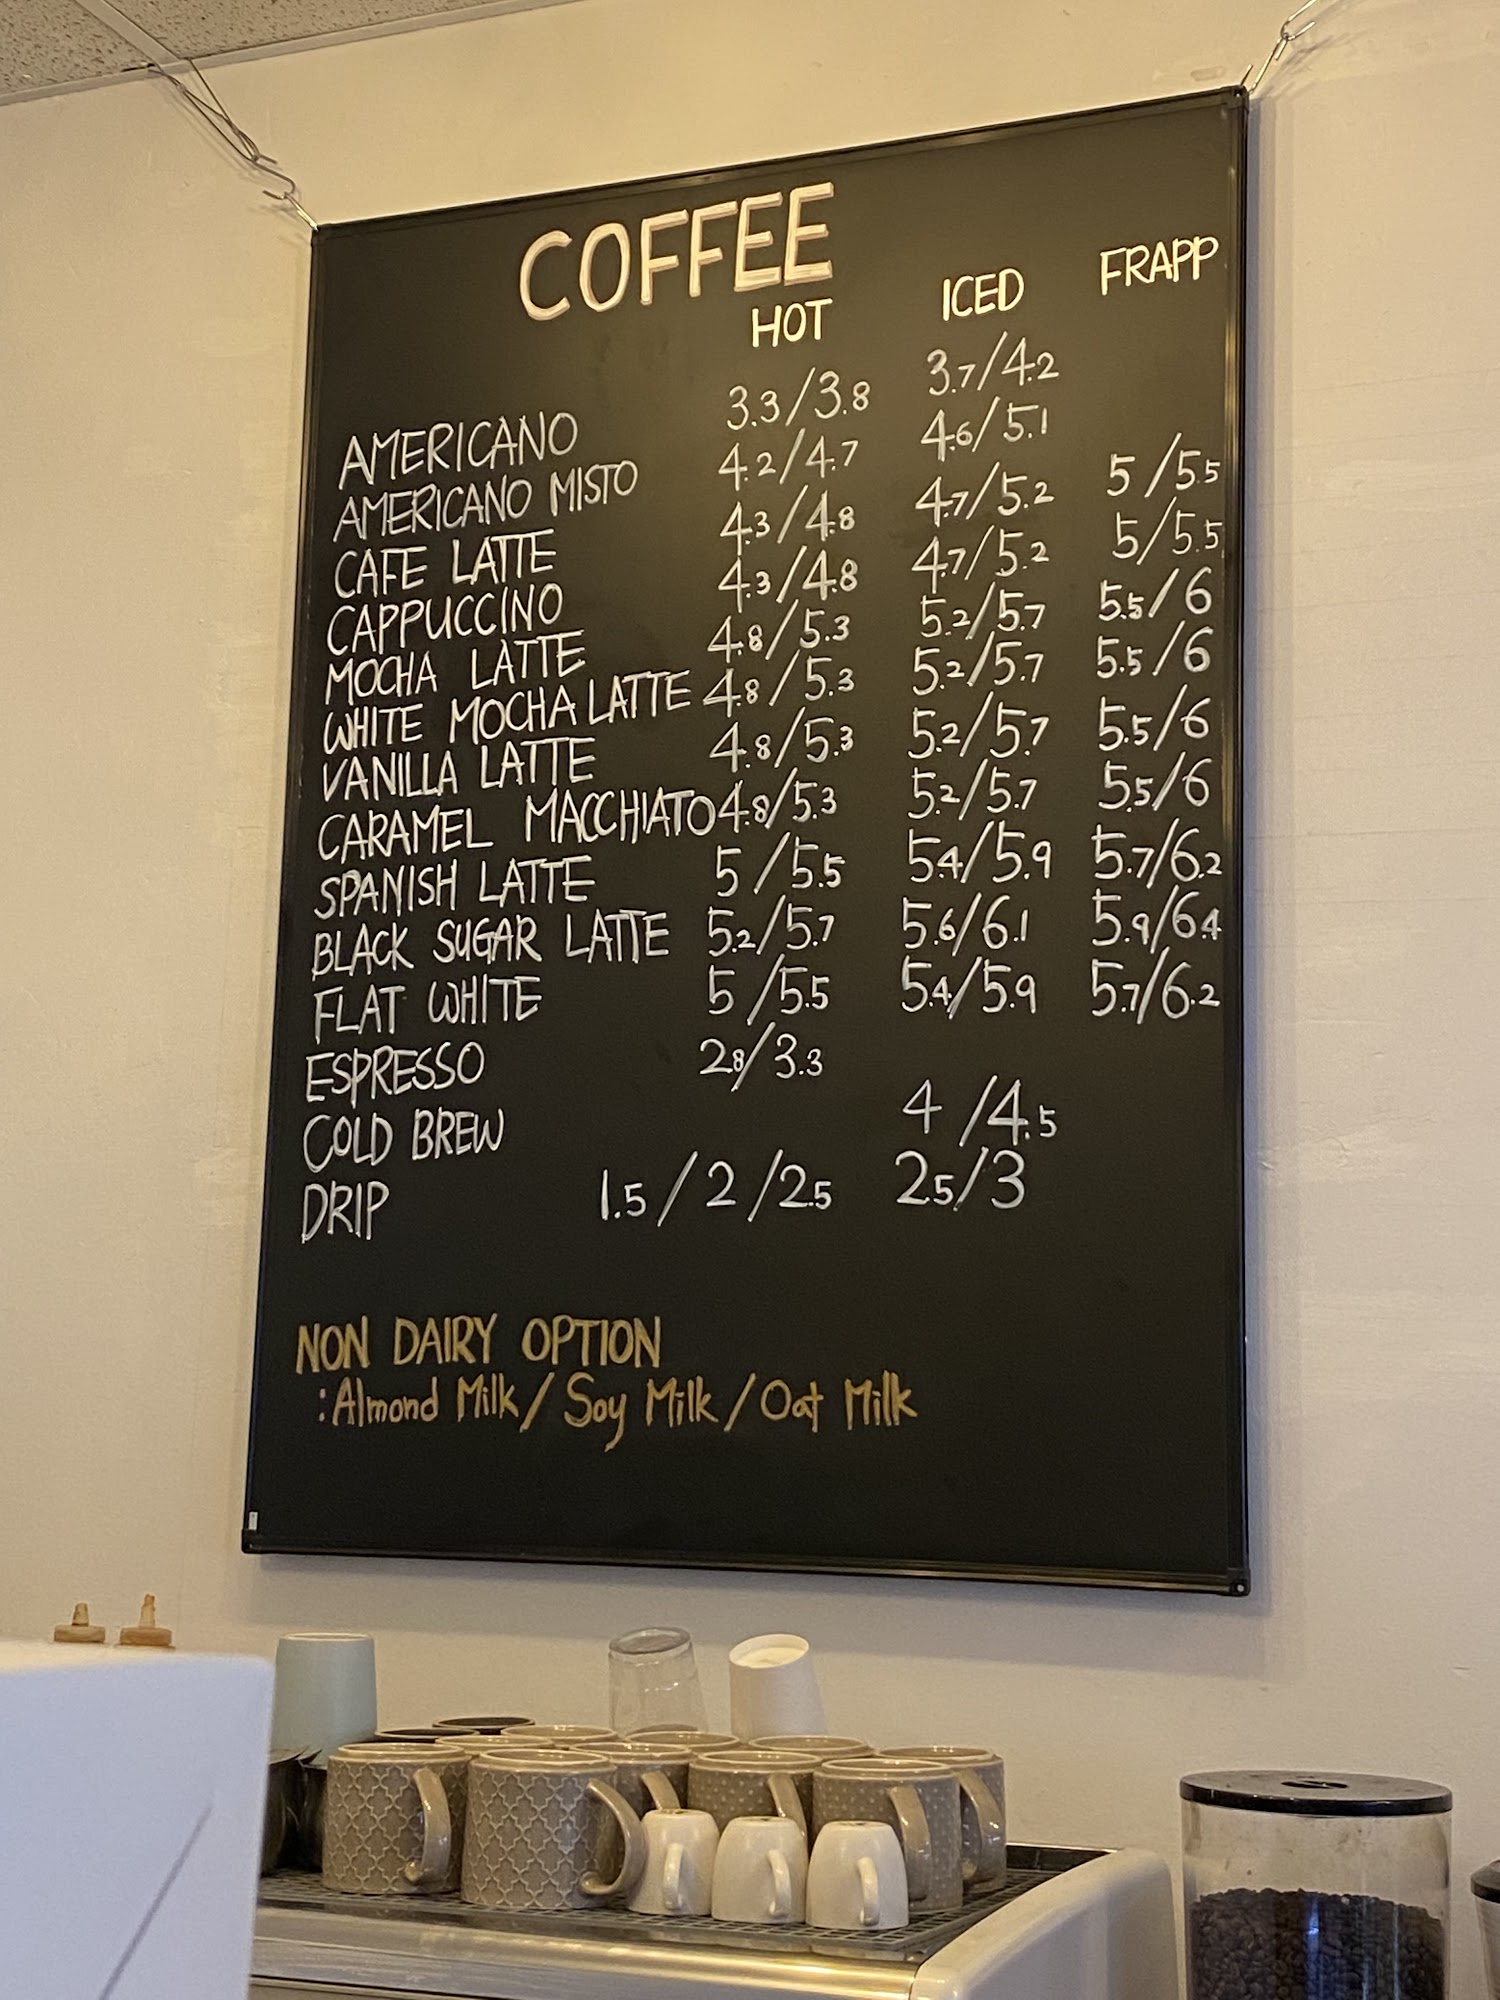 COFFEE
HOT ICED FRAPP
AMERICANO 3.3/3.8 3.7/4.2
AMERICANO MISTO 4.2/4.7 4.6/5.1
CAFE LATTE 4.3/4.8 4.7/5.2 5/5.5
CAPPUCCINO 4.3/4.8 4.7/5.2 5/5.5
MOCHA LATTE 4.8/5.3 5.2/5.7 5.5/6
WHITE MOCHA LATTE 4.8/5.3 5.2/5.7 5.5/6
VANILLA LATTE 4.8/5.3 5.2/5.7 5.5/6
CARAMEL MACCHIATO 4.8/5.3 5.2/5.7 5.5/6
SPANISH LATTE 5/5.5 5.4/5.9 5.7/6.2
BLACK SUGAR LATTE 5.2/5.7 5.6/6.1 5.9/6.4
FLAT WHITE 5/5.5 5.4/5.9 5.7/6.2
ESPRESSO 2.8/3.3
COLD BREW 4/4.5
DRIP 1.5/2/2.5 2.5/3
NON DAIRY OPTION
:Almond Milk/Soy Milk/Oat Milk